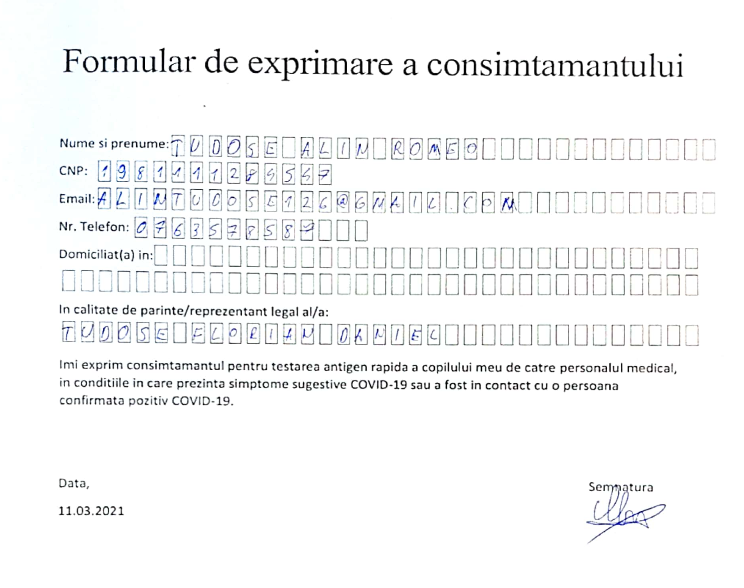 Formular de exprimare a consimtamantului
Nume si prenume: TUDOSE ALIN ROMEO
CNP: 1981111289557
Email: ALINTUDOSE126@GMAIL.COM
Nr. Telefon: 0763578587
Domiciliat(a) in:
In calitate de parinte/reprezentant legal al/a:
TUDOSE FLORIAN DANIEL
Imi exprim consimtamantul pentru testarea antigen rapida a copilului meu de catre personalul medical,
in conditiile in care prezinta simptome sugestive COVID-19 sau a fost in contact cu o persoana
confirmata pozitiv COVID-19.
Data,
Semnatura
11.03.2021